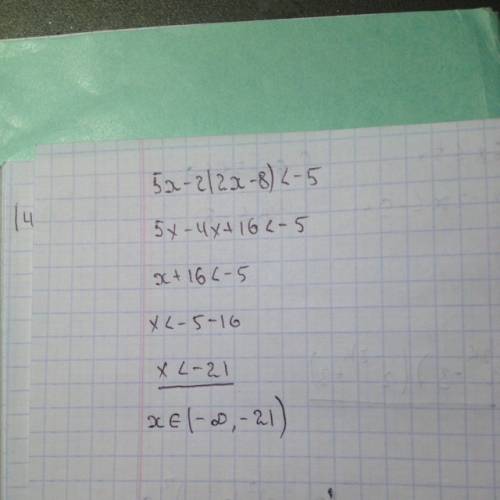 5x-2(2x-8)<-5
14
5x-4x+16<-5
x+16<-5
x<-5-16
x<-21
x∈(-∞,-21)